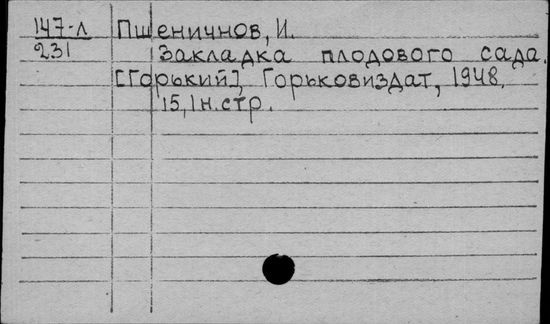 147-л Пшеничнов, И.
231 Закладка плодового сада.
[Горький], Горьковиздат, 1948.
15, 1 н. стр.